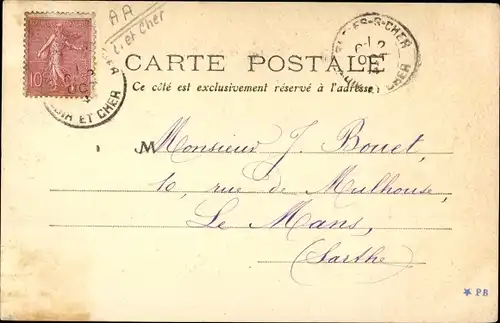 AA
Li et Cher
10
CARTE POSTALE
Ce côté est exclusivement réservé à l'adresse
LOIR ET CHER
S-CHER
CHER
Monsieur J. Bouet,
10, rue de Mulhouse,
Le Mans,
(Sarthe)
★ PB